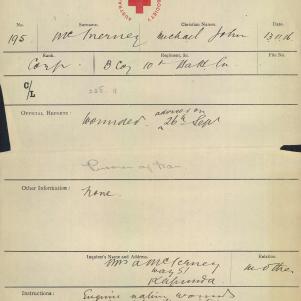 SOCIETY
No. Surname. Christian Names. Date.
195 McInerney Michael John 13.11.16
Rank. Regiment, &c. File No.
Corp B Coy 10th Battn
C/L
OFFICIAL REPORTS: Wounded advised on 26th Sept
Prisoner of War
Other Information: None.
Inquirer's Name and Address. Relation
Mrs A McInerney Mother
Kapunda
Instructions: Enquire nature wound